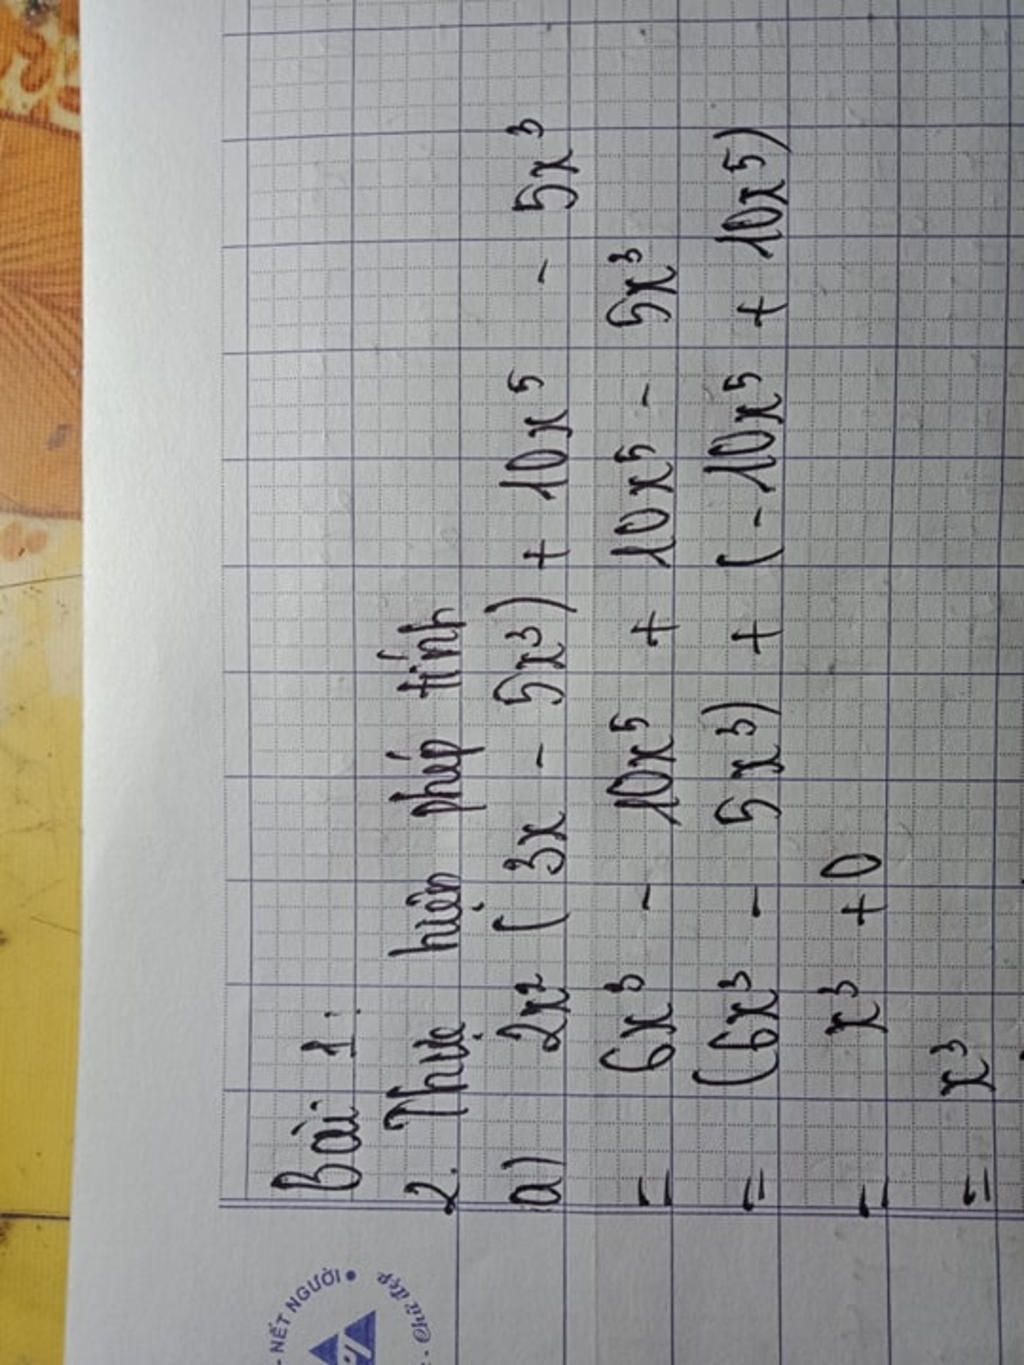 Bài 1:
2. Thực hiện phép tính
a) 2x² (3x - 5x³) + 10x⁵ - 5x³
= 6x³ - 10x⁵ + 10x⁵ - 5x³
= (6x³ - 5x³) + (-10x⁵ + 10x⁵)
= x³ + 0
= x³
- NẾT NGƯỜI •
- Chữ đẹp